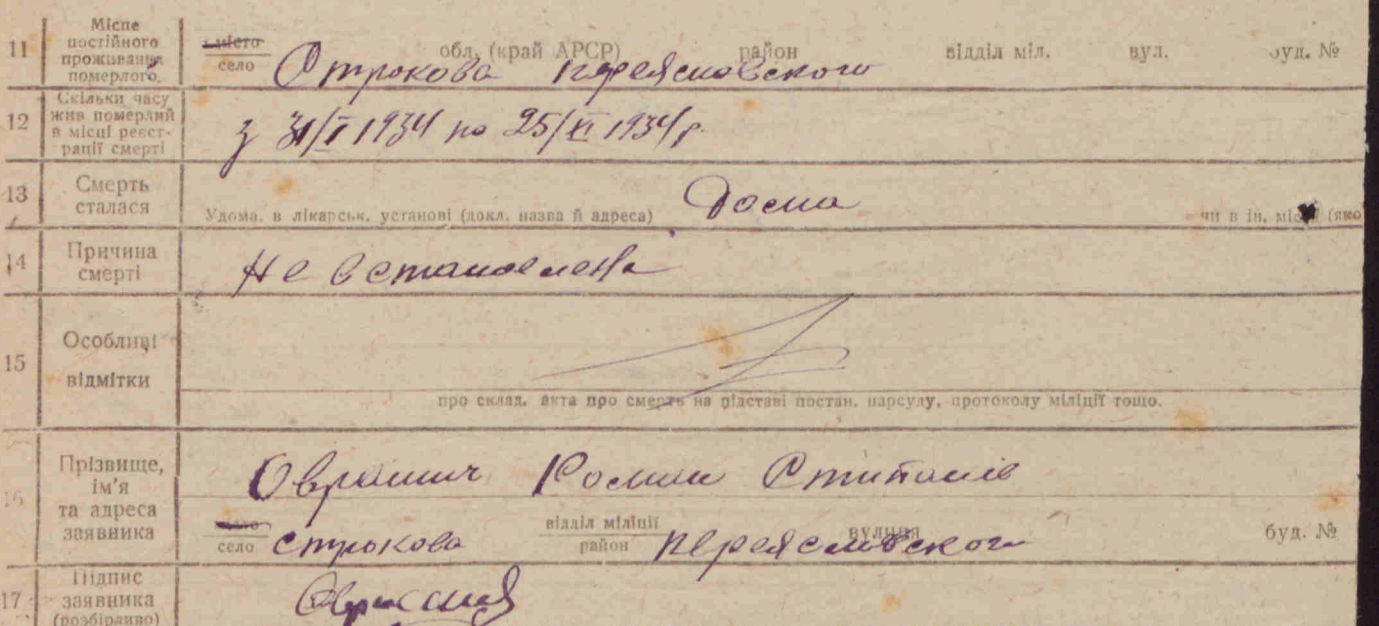 11 Місце постійного проживання померлого місто село обл. (край АРСР) район відділ міл. вул. буд. №
Строкова Переясловского
12 Скільки часу жив померлий в місці реєст- рації смерті
з 31/I 1934 по 25/XI 1934 р.
13 Смерть сталася Удома, в лікарськ. установі (докл. назва й адреса) Дома чи в ін. місці (яко
14 Причина смерті Не встановлена
15 Особливі відмітки
про склад. акта про смерть на підставі постан. нарсуду, протоколу міліції тощо.
16 Прізвище, ім'я та адреса заявника
Роман
село Строкова відділ міліції район Переясловского вулиця буд. №
17 Підпис заявника (розбірливо)